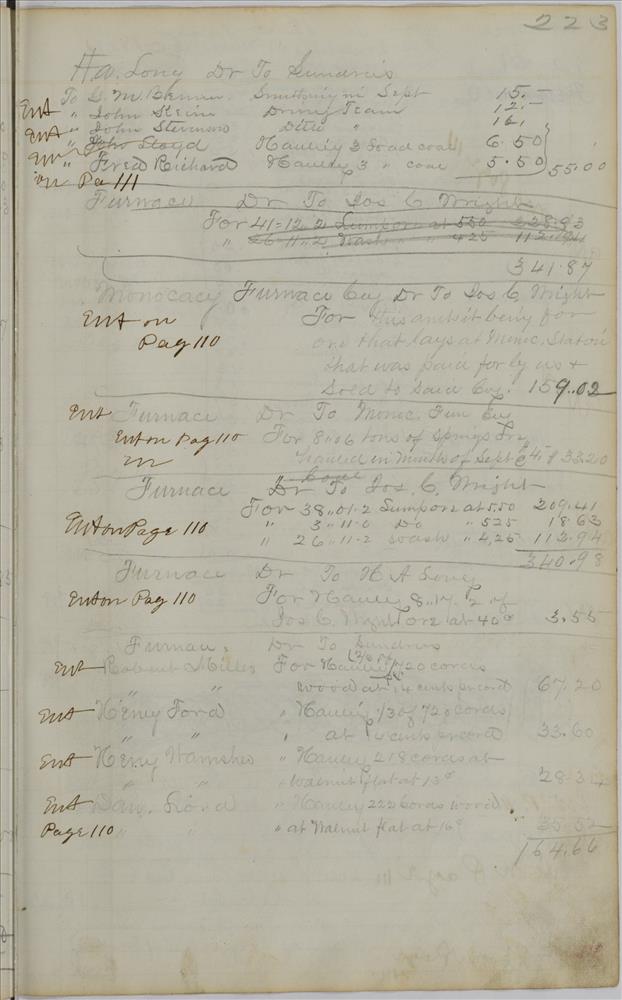 223
H. A. Long Dr To Sundries
To G. M. Smithing in Sept 15.-
Ent " John Stein Driving Team 12.-
Ent " John Stevenson Ditto " 16.
Ent " John Lloyd Hauling 2 Load coal 6.50
" Fred Richard Hauling 3 " coal 5.50 55.00
on Pa 111
Furnace Dr To Jos C Wright
For 41=12.2 Lumpore at 550 228.93
" 26.11.2 Wash " 425 112.94
341.87
Monocacy Furnace Coy Dr To Jos C. Wright
Ent on For this it being for
Pag 110 ore that lays at Monoc. Station
that was paid for by us &
Sold to Said Coy. 159.02
Ent Furnace Dr To Monoc. Fur Coy
Ent on Pag 110 For 8.06 tons of Springs
Hauled in Month of Sept @ 4 33.20
Furnace Dr To Jos. C. Wright
For 38.01.2 Lumpore at 5.50 209.41
Ent on Page 110 " 3.11.0 Do " 525 18.63
" 26.11.2 Wash " 4,25 112.94
340.98
Furnace Dr To H A Long
Ent on Pag 110 For Hauling 8.17.2 of
Jos C. Wright ore at 40c 3.55
Furnace Dr To Sundries
Ent Robert Miller For Hauling 720 cords
" " wood at 14 cents pr cord 67.20
Ent Henry Ford " Hauling 1/3 of 720 cords
" " " at 14 cents pr cord 33.60
Ent Henry " Hauling 218 cords at
" " " Walnut flat at 13c 28.34
Ent Dan. " Hauling 222 Cords wood
Page 110 " " " at Walnut flat at 16c 35.52
164.66